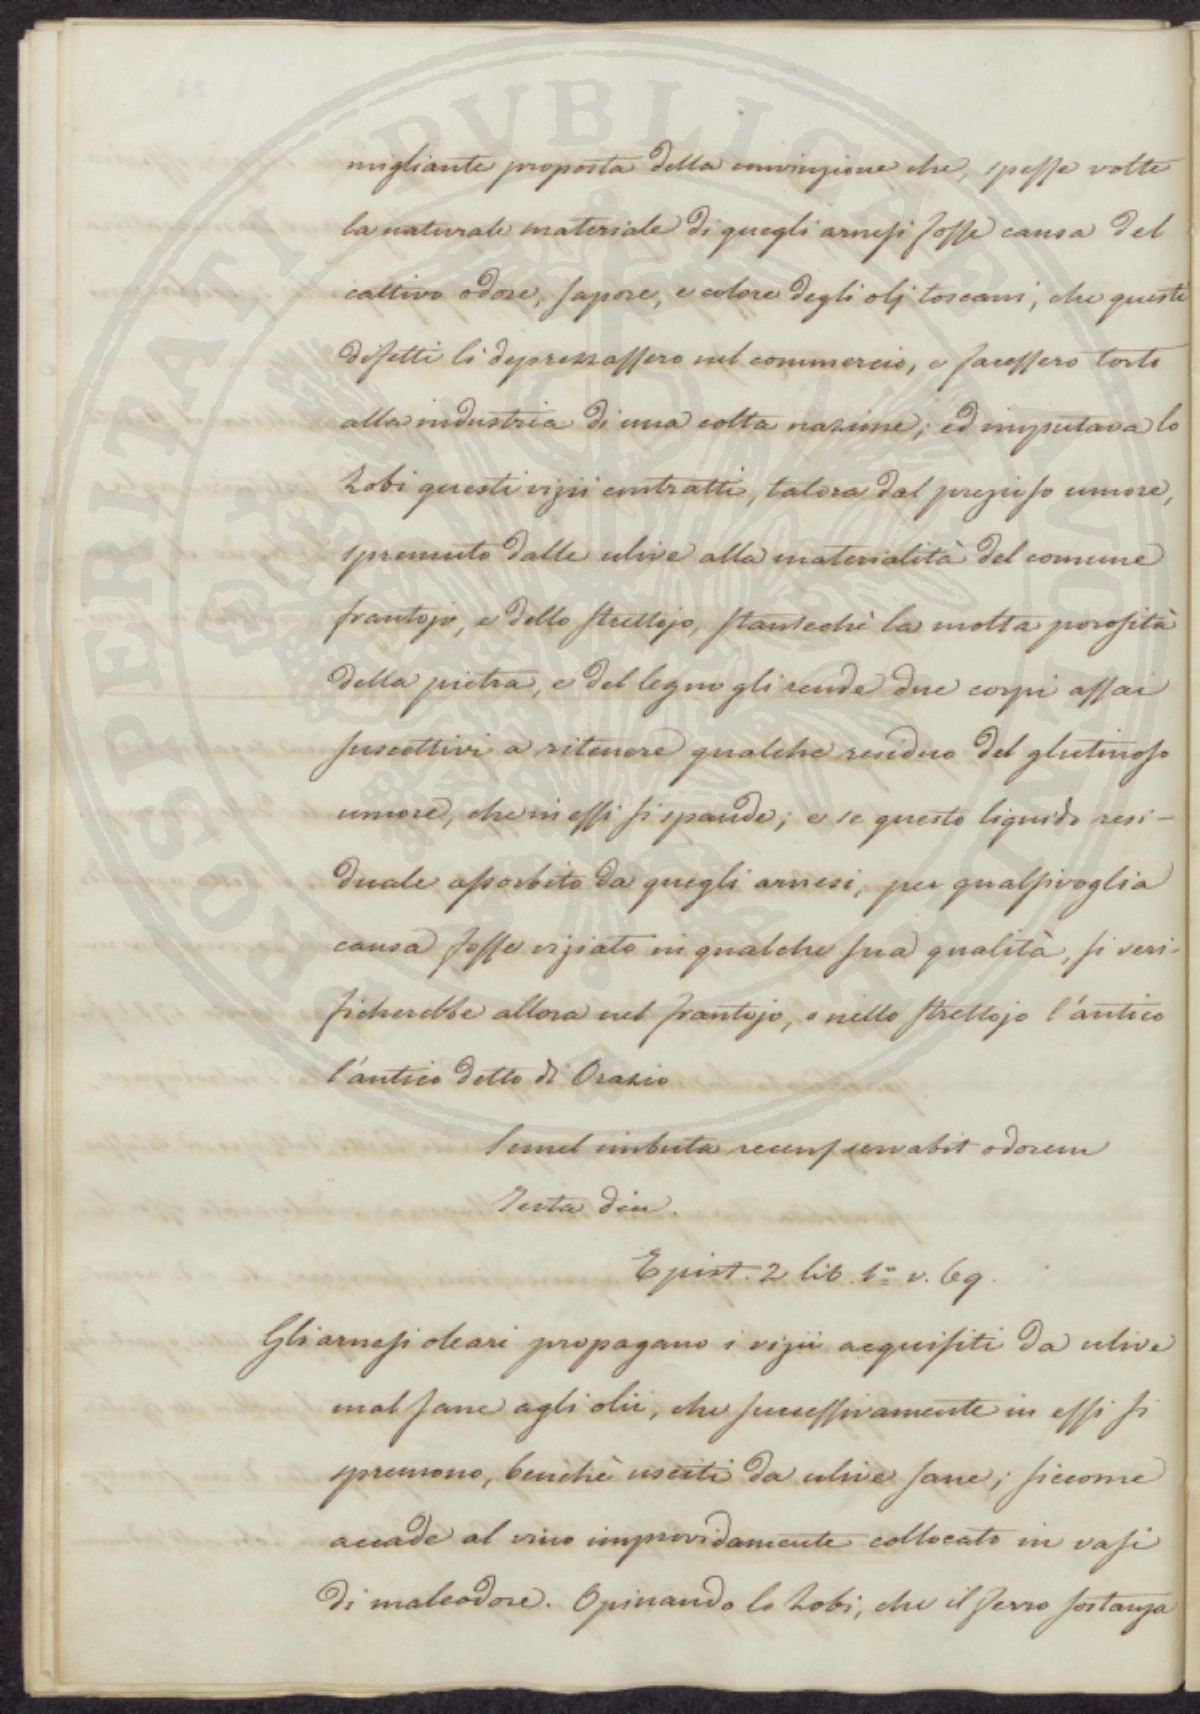 migliante proposta della convinzione che, spesse volte
la naturale materiale di quegli arnesi fosse causa del
cattivo odore, sapore, e colore degli olj toscani, che questi
difetti li deprezzassero nel commercio, e facessero torto
alla industria di una colta nazione; ed imputava lo
Zobi questi vizii contratti, talora dal prezioso umore,
spremuto dalle ulive alla materialità del comune
frantojo, e dello strettojo, stantechè la molta porosità
della pietra, e del legno gli rende due corpi assai
suscettivi a ritenere qualche residuo del glutinoso
umore, che in essi si spande; e se questo liquido resi-
duale assorbito da quegli arnesi, per qualsivoglia
causa fosse viziato in qualche sua qualità, si veri-
ficherebbe allora nel frantojo, o nello strettojo l'antico
l'antico detto di Orazio
Semel imbuta recens servabit odorem
Testa diu.
Epist. 2 lib. 1º v. 69.
Gli arnesi oleari propagano i vizii acquisiti da ulive
mal sane agli olii, che successivamente in essi si
spremono, benchè usciti da ulive sane; siccome
accade al vino improvidamente collocato in vasi
di maleodore. Opinando lo Zobi, che il ferro sostanza
PROSPERITATI PVBLICAE AVGENDAE